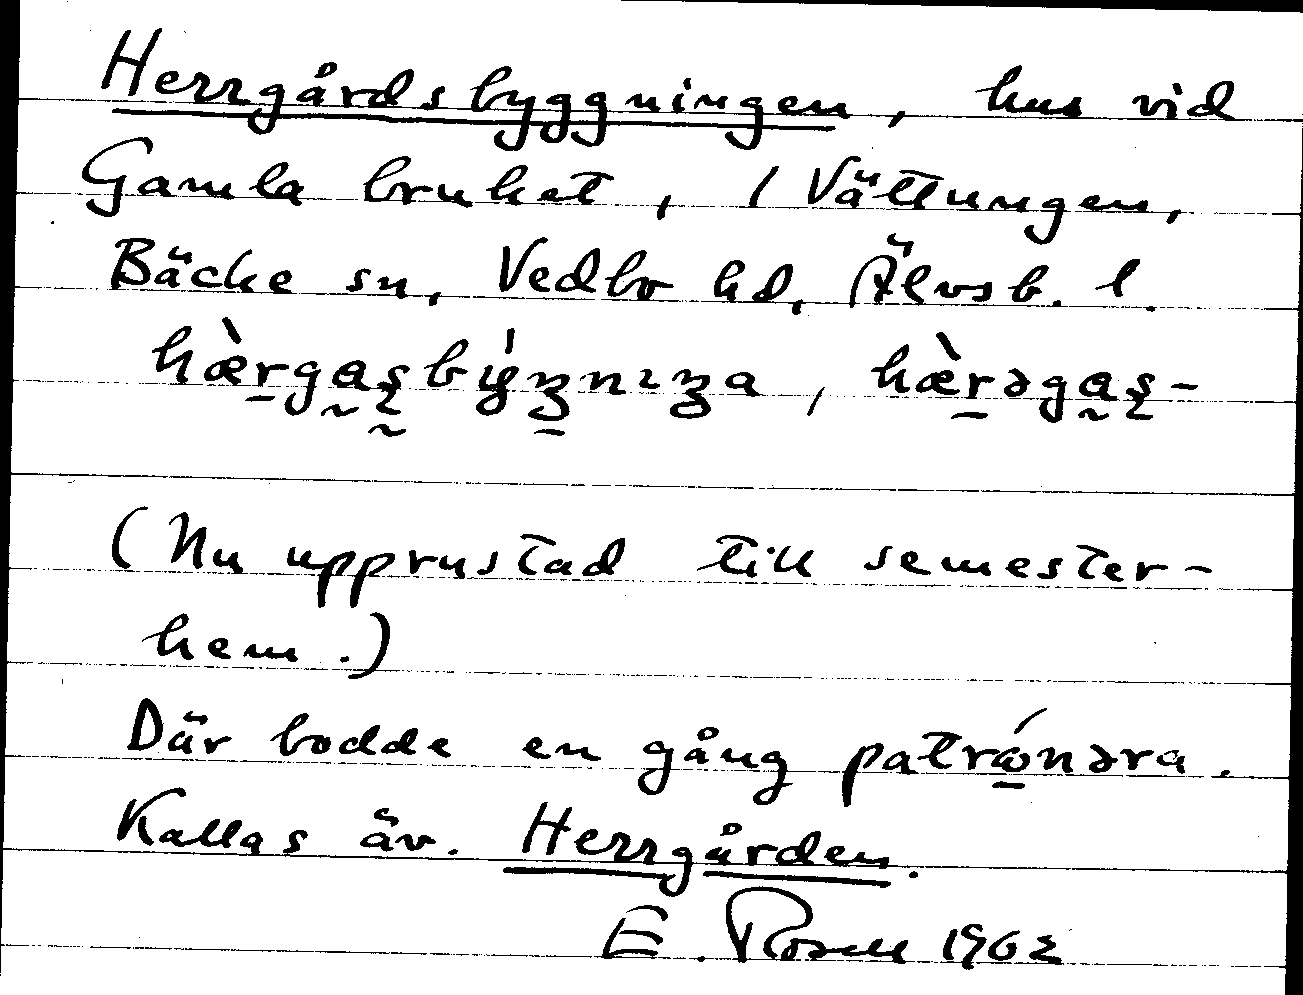 Herrgårdsbyggningen, hus vid
Gamla bruket, / Vättungen,
Bäcke sn, Vedbo hd, Älvsb. l.
hæ̀rgaʂbýŋnıŋa, hæ̀rəgaʂ-
(Nu upprustad till semester-
hem.)
Där bodde en gång patrónəra.
Kallas äv. Herrgården.
E. Rosell 1962